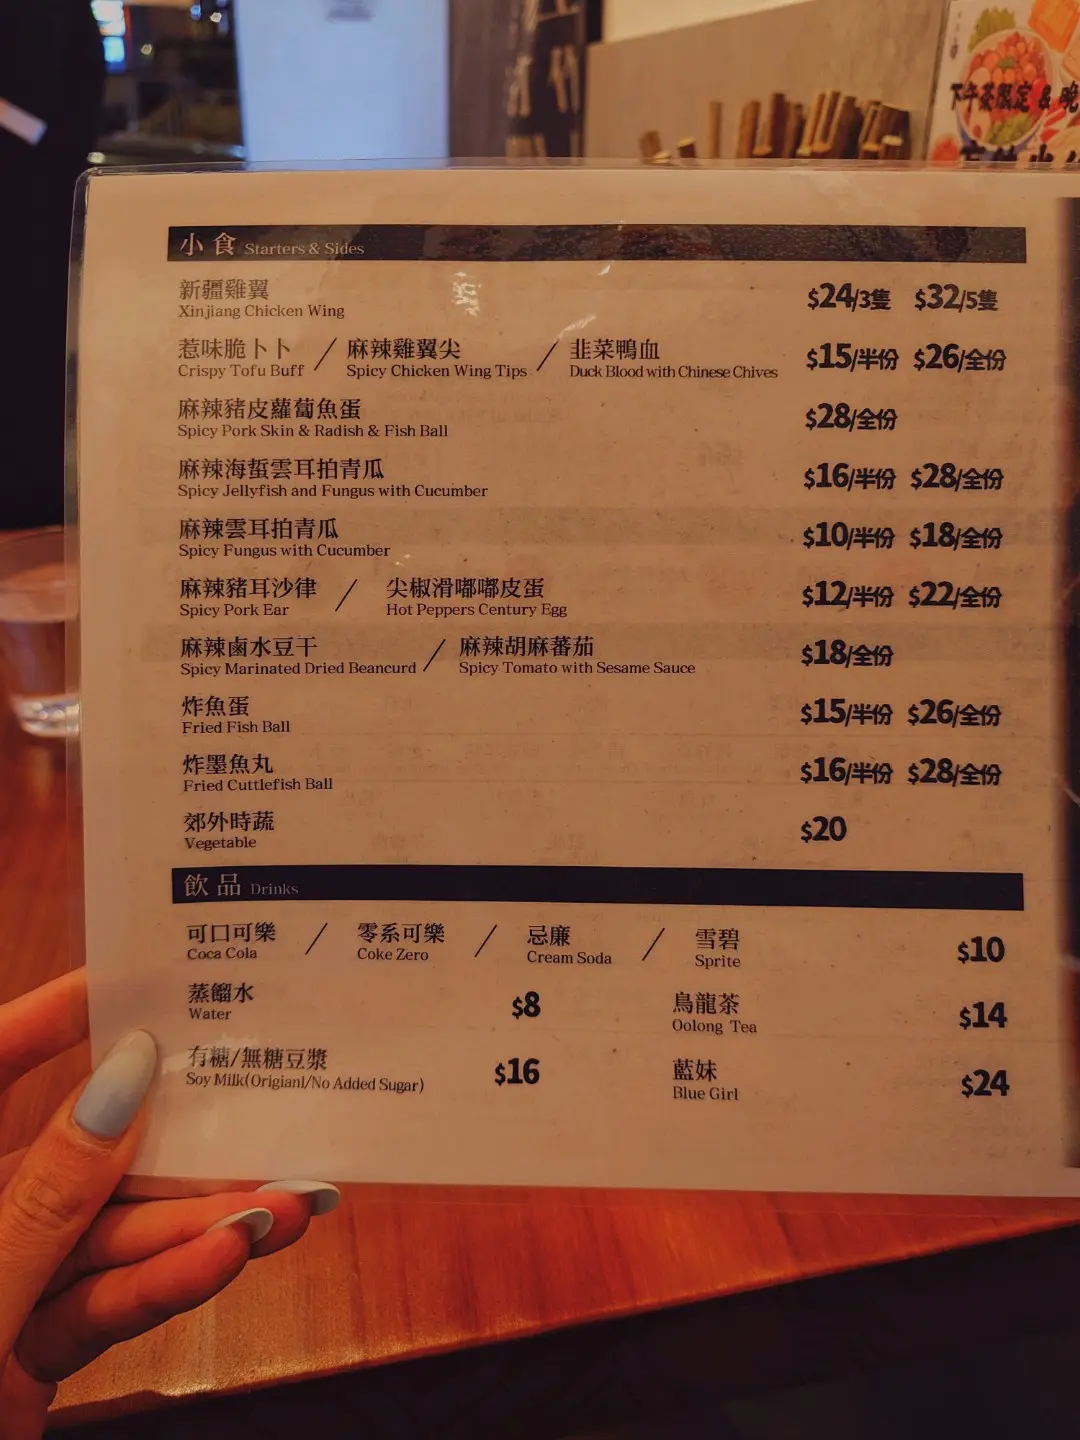 下午茶限定 & 晚
小食 Starters & Sides
新疆雞翼 $24/3隻 $32/5隻
Xinjiang Chicken Wing
惹味脆卜卜 / 麻辣雞翼尖 / 韭菜鴨血 $15/半份 $26/全份
Crispy Tofu Buff Spicy Chicken Wing Tips Duck Blood with Chinese Chives
麻辣豬皮蘿蔔魚蛋 $28/全份
Spicy Pork Skin & Radish & Fish Ball
麻辣海蜇雲耳拍青瓜 $16/半份 $28/全份
Spicy Jellyfish and Fungus with Cucumber
麻辣雲耳拍青瓜 $10/半份 $18/全份
Spicy Fungus with Cucumber
麻辣豬耳沙律 / 尖椒滑嘟嘟皮蛋 $12/半份 $22/全份
Spicy Pork Ear Hot Peppers Century Egg
麻辣鹵水豆干 / 麻辣胡麻蕃茄 $18/全份
Spicy Marinated Dried Beancurd Spicy Tomato with Sesame Sauce
炸魚蛋 $15/半份 $26/全份
Fried Fish Ball
炸墨魚丸 $16/半份 $28/全份
Fried Cuttlefish Ball
郊外時蔬 $20
Vegetable
飲品 Drinks
可口可樂 / 零系可樂 / 忌廉 / 雪碧 $10
Coca Cola Coke Zero Cream Soda Sprite
蒸餾水 $8 烏龍茶 $14
Water Oolong Tea
有糖/無糖豆漿 $16 藍妹 $24
Soy Milk(Origianl/No Added Sugar) Blue Girl